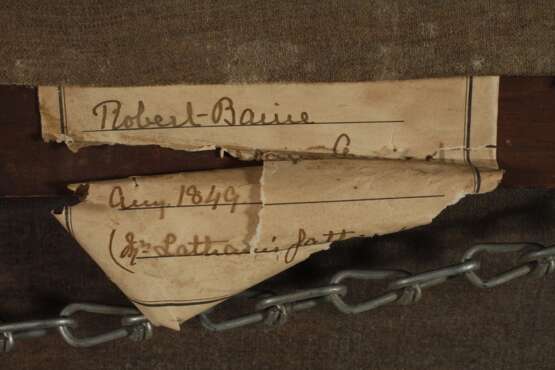 Robert Baine
Aug 1849
(Mr Latham's fath